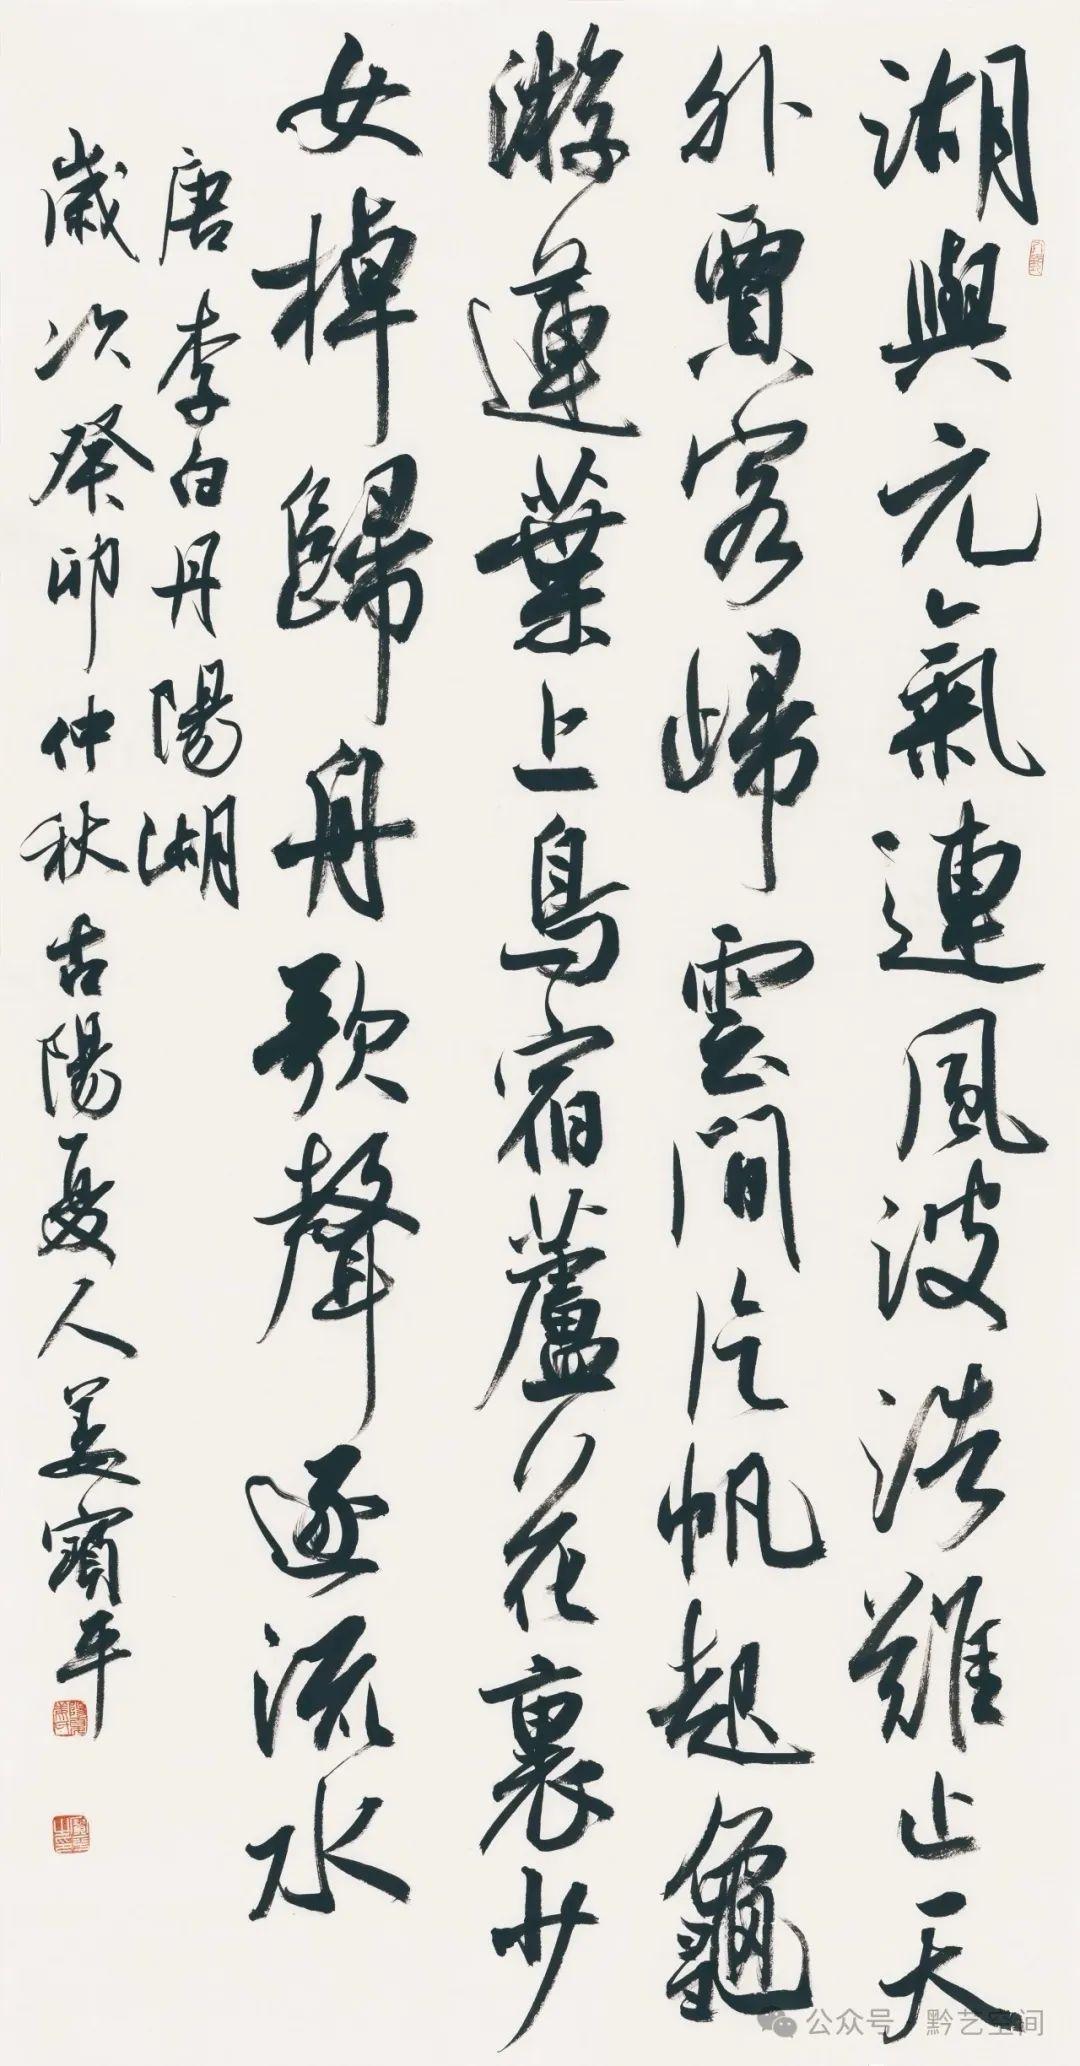 湖與元氣連風波浩難止天
外賈客歸雲間片帆起龜
游蓮葉上鳥宿蘆花裏少
女棹歸舟歌聲逐流水
唐李白丹陽湖
歲次癸卯仲秋古陽夏人姜寶平
公众号·黔艺空间